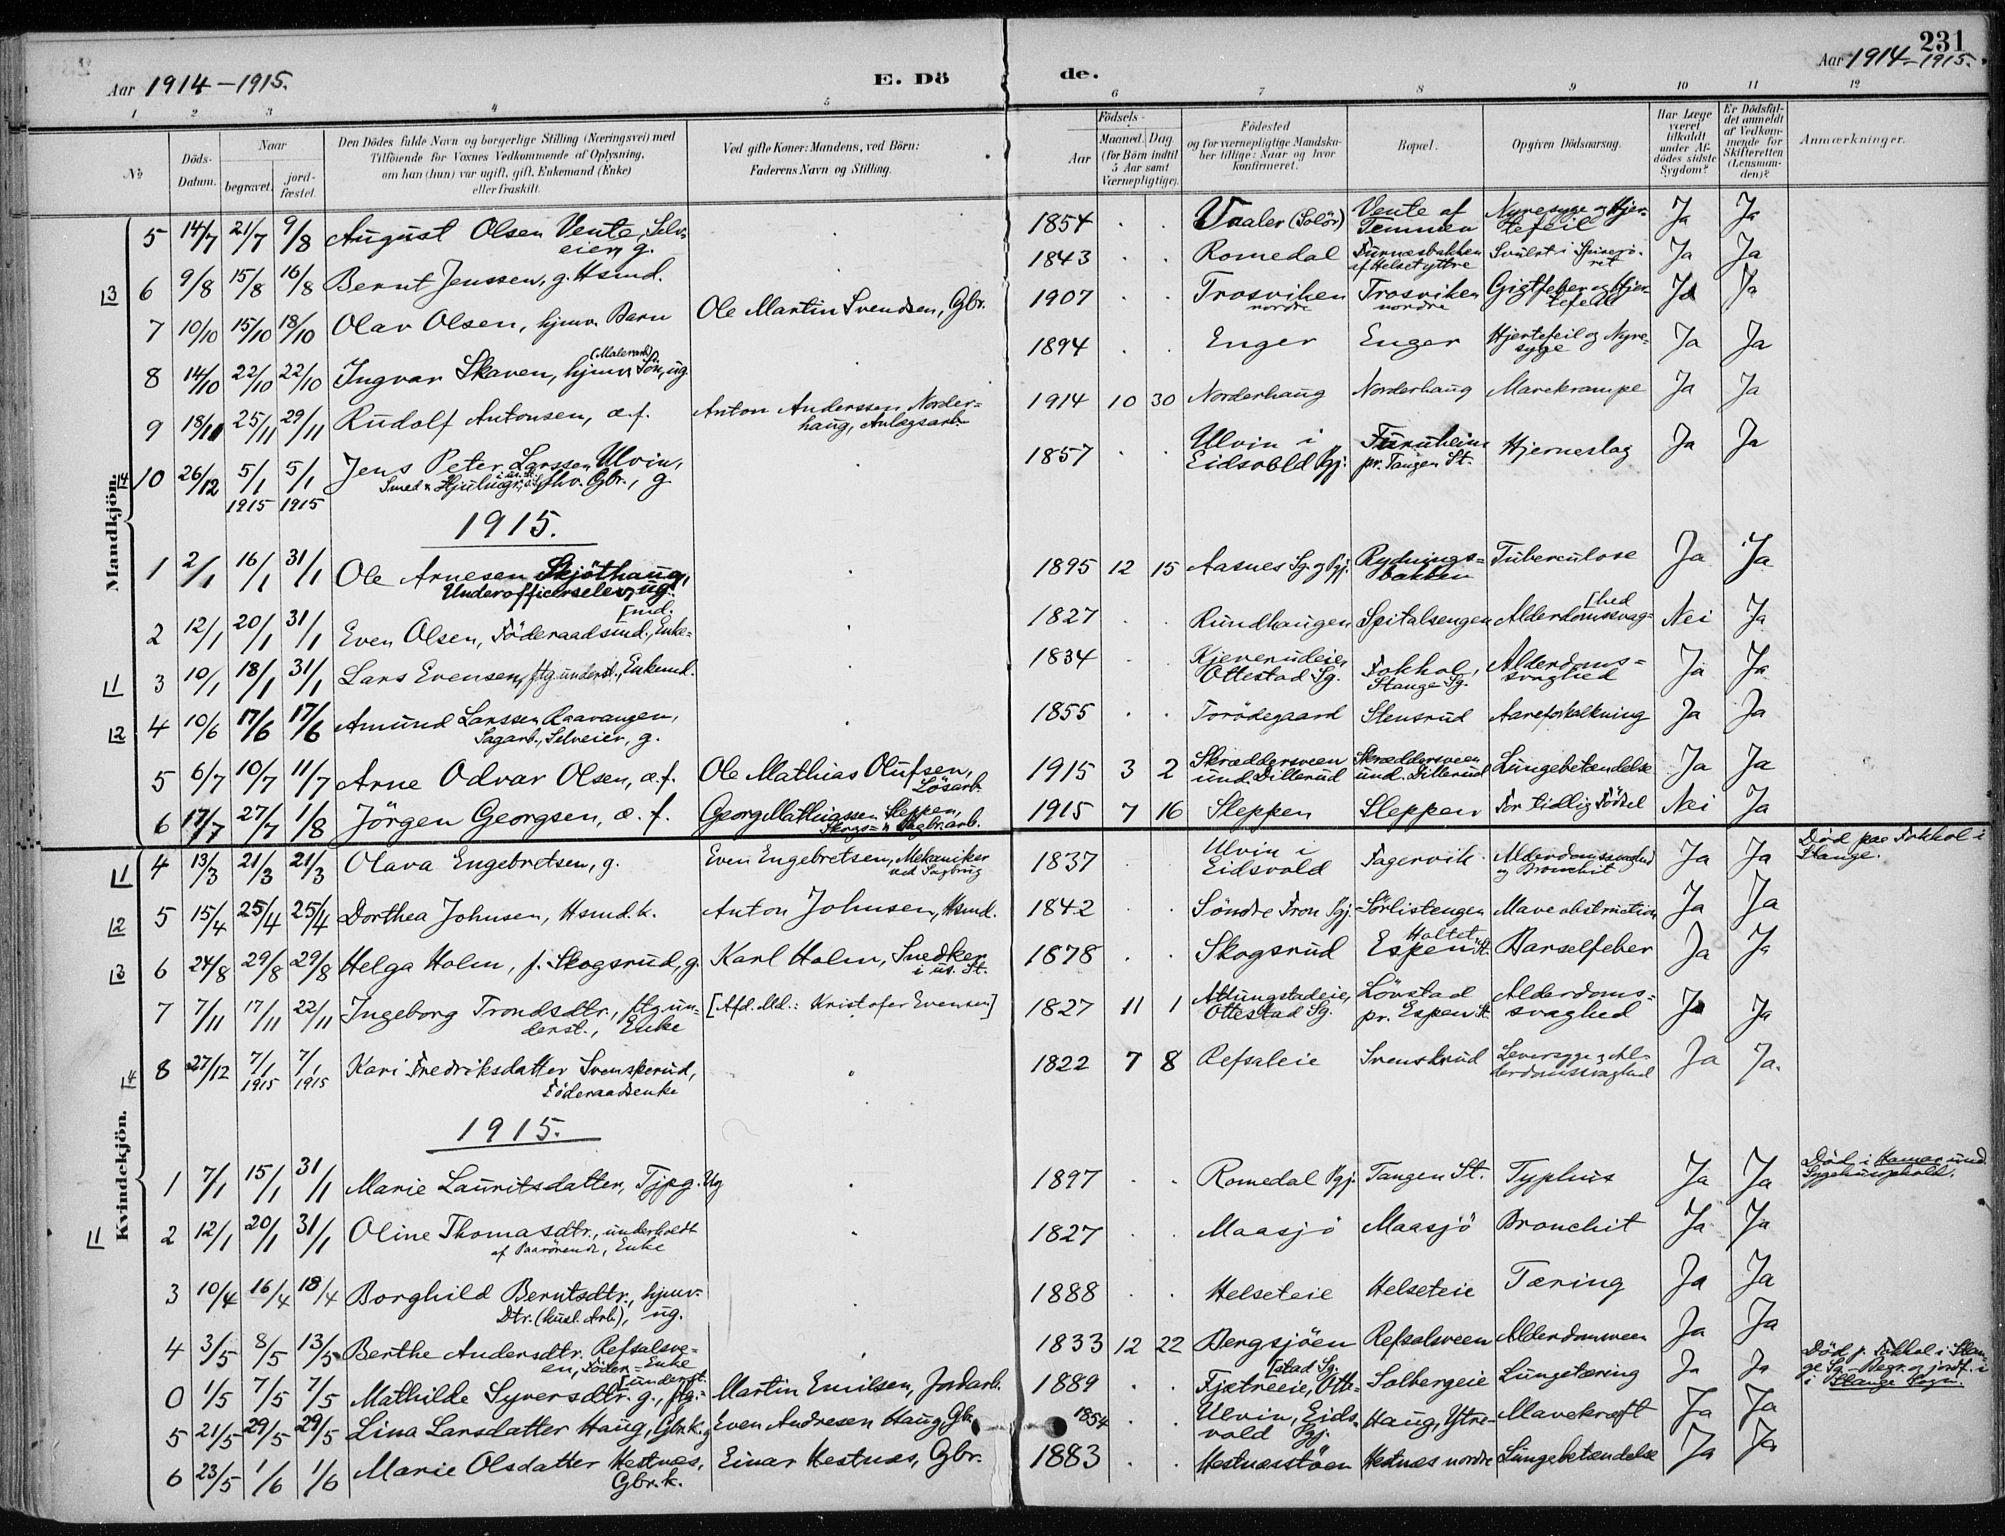 231
Aar 1914-1915.
E. Dö de.
Aar 1914-1915.
1 2 3 4 5 6 7 8 9 10 11 12
№
Döds-Datum.
Naar
begravet.
jord-fæstet.
Den Dödes fulde Navn og borgerlige Stilling (Næringsvei) med
Tilföiende for Voxnes Vedkommende af Oplysning,
om han (hun) var ugift, gift, Enkemand (Enke)
eller fraskilt.
Ved gifte Koner: Mandens, ved Börn:
Faderens Navn og Stilling.
Födsels-
Aar
Maaned. Dag.
(for Börn indtil
5 Aar samt
Værnepligtige).
Födested
og for værnepligtige Mandska-
ber tillige: Naar og hvor
konfirmeret.
Bopæl.
Opgiven Dödsaarsag.
Har Læge
været
tilkaldt
under Af-
dödes sidste
Sygdom?
Er Dödsfal-
det anmeldt
af Vedkom-
mende for
Skifteretten
(Lensman-
den)?
Anmærkninger.
Mandkjön.
5 14/7 21/7 9/8 August Olsen Vente, Selv-
eier, g. 1854 Vaaler (Solör) Vente af
Temmen Nyresyge og Hjer-
tefeil Ja Ja
L3 6 9/8 15/8 16/8 Bernt Jenssen, g. Hsmd. 1843 Romedal Furnæsbakken
af Helset ytre Svulst i Spiserö-
ret Ja Ja
7 10/10 15/10 18/10 Olav Olsen, hjmv. Barn Ole Martin Svendsen, Gbr. 1907 Trosviken
nordre Trosviken
nordre Gigtfeber og Hjer-
tefeil Ja Ja
8 14/10 22/10 22/10 Ingvar Skaven, hjmv. (Malerarb.) Sön, ug. 1894 Enger Enger Hjertefeil og Nyre-
syge Ja Ja
9 18/11 25/11 29/11 Rudolf Antonsen, æ.f. Anton Anderssen Norder-
haug, Anlægsarb. 1914 10 30 Norderhaug Norderhaug Mavekrampe Ja Ja
L4 10 26/12 5/1 1915 5/1 1915 Jens Peter Larssen Ulvin,
Smed &amp; Hjulmgr., Gbr., g. 1857 Ulvin i
Eidsvold Pgj. Furuheim
pr. Tangen St. Hjerneslag Ja Ja
1915.
1 2/1 16/1 31/1 Ole Arnesen Skjöthaug,
Underofficerselev, ug. 1895 12 15 Aasnes Sg. og Pgj. Rydnings-
bakken Tuberculose Ja Ja
2 12/1 20/1 31/1 Even Olsen, Föderaadsmd., Enke-
[md. 1827 Rundhaugen Spitalsengen Alderdomssvag-
[hed Nei Ja
L1 3 10/1 18/1 31/1 Lars Evensen, ftg.underst., Enkemd. 1834 Kjeverudeie,
Ottestad Sg. Fokhol,
Stange Sg. Alderdoms-
svaghed Ja Ja
L2 4 10/6 17/6 17/6 Amund Larssen Raavangen,
Sagarb., Selveier, g. 1855 Torödegaard Stensrud Aareforkalkning Ja Ja
5 6/7 10/7 11/7 Arne Odvar Olsen, æ.f. Ole Mathias Olufsen,
Lösarb. 1915 3 2 Skræddersveen
und. Dillerud Skræddersveen
und. Dillerud Lungebetændelse Ja Ja
6 17/7 27/7 1/8 Jörgen Georgsen, æ.f. Georg Mathiassen Sleppen,
Skogs- &amp; Sagbr.arb. 1915 7 16 Sleppen Sleppen For tidlig Födsel Nei Ja
Kvindekjön.
L1 4 13/3 21/3 21/3 Olava Engebretsen, g. Even Engebretsen, Mekaniker
ved Sagbrug 1837 Ulvin i
Eidsvold Fagervik Alderdomssvaghed
og Bronchit Ja Ja Död paa Fokhol i
Stange.
L2 5 15/4 25/4 25/4 Dorthea Johnsen, Hsmd.k. Anton Johnsen, Hsmd. 1842 Söndre Fron Pgj. Sörlistengen Maveobstruction Ja Ja
L3 6 24/8 29/8 29/8 Helga Holm, f. Skogsrud, g. Karl Holm, Snedker
i us. St. 1878 Skogsrud Holtet
Espen St. Barselfeber Ja Ja
7 7/11 17/11 22/11 Ingeborg Trondsdtr., ftg.un-
derst., Enke [Afd. Md.: Kristofer Evensen] 1827 11 1 Attungstadeie,
Ottestad Sg. Lövstad
pr. Espen St. Alderdoms-
svaghed Ja Ja
L4 8 27/12 7/1 1915 7/1 1915 Kari Fredriksdatter Svenskerud,
Föderaadsenke 1822 7 8 Refsaleie Svenskrud Leversyge &amp; Al-
derdomssvaghed Ja Ja.
1915.
1 7/1 15/1 31/1 Marie Lauritsdatter, Tjpg. Ug 1897 Romedal Pgj. Tangen St. Typhus Ja Ja Död i Hamar und.
Sygehusophold.
L1 2 12/1 20/1 31/1 Oline Thomasdtr., underholdt
af Paarörende, Enke 1827 Maasjö Maasjö Bronchit Ja Ja
3 10/4 16/4 18/4 Borghild Berntsdtr., hjmv.
Dtr. (husl. Arb), ug. 1888 Helseteie Helseteie Tæring Ja Ja
4 3/5 8/5 13/5 Berthe Andersdtr. Refsalsve-
en, Föder.-Enke 1833 12 22 Bergsjöen Refsalsveen Alderdomsveen Ja Ja
0 1/5 7/5 7/5 Mathilde Syversdtr. g., ftg.-
[underst. Martin Emilsen, Jordarb. 1889 Fjætreeie, Otte-
[stad Sg. Solbergeie Lungetæring Ja Ja Död p. Fokhol i Stan-
ge Sg. Begr. og jordf. i
i Stange Sogn.
5 21/5 29/5 29/5 Lina Larsdatter Haug, Gbr.k. g Even Andresen Haug Gbr. 1854 Ulvin, Eids-
vold Pgj. Haug, Ytre Mavekræft Ja Ja
6 23/5 1/6 1/6 Marie Olsdatter Hestnæs,
Gbr.k. Einar Hestnæs, Gbr. 1883 Hestnæsstöen Hestnæs nordre Lungebetændelse Ja Ja